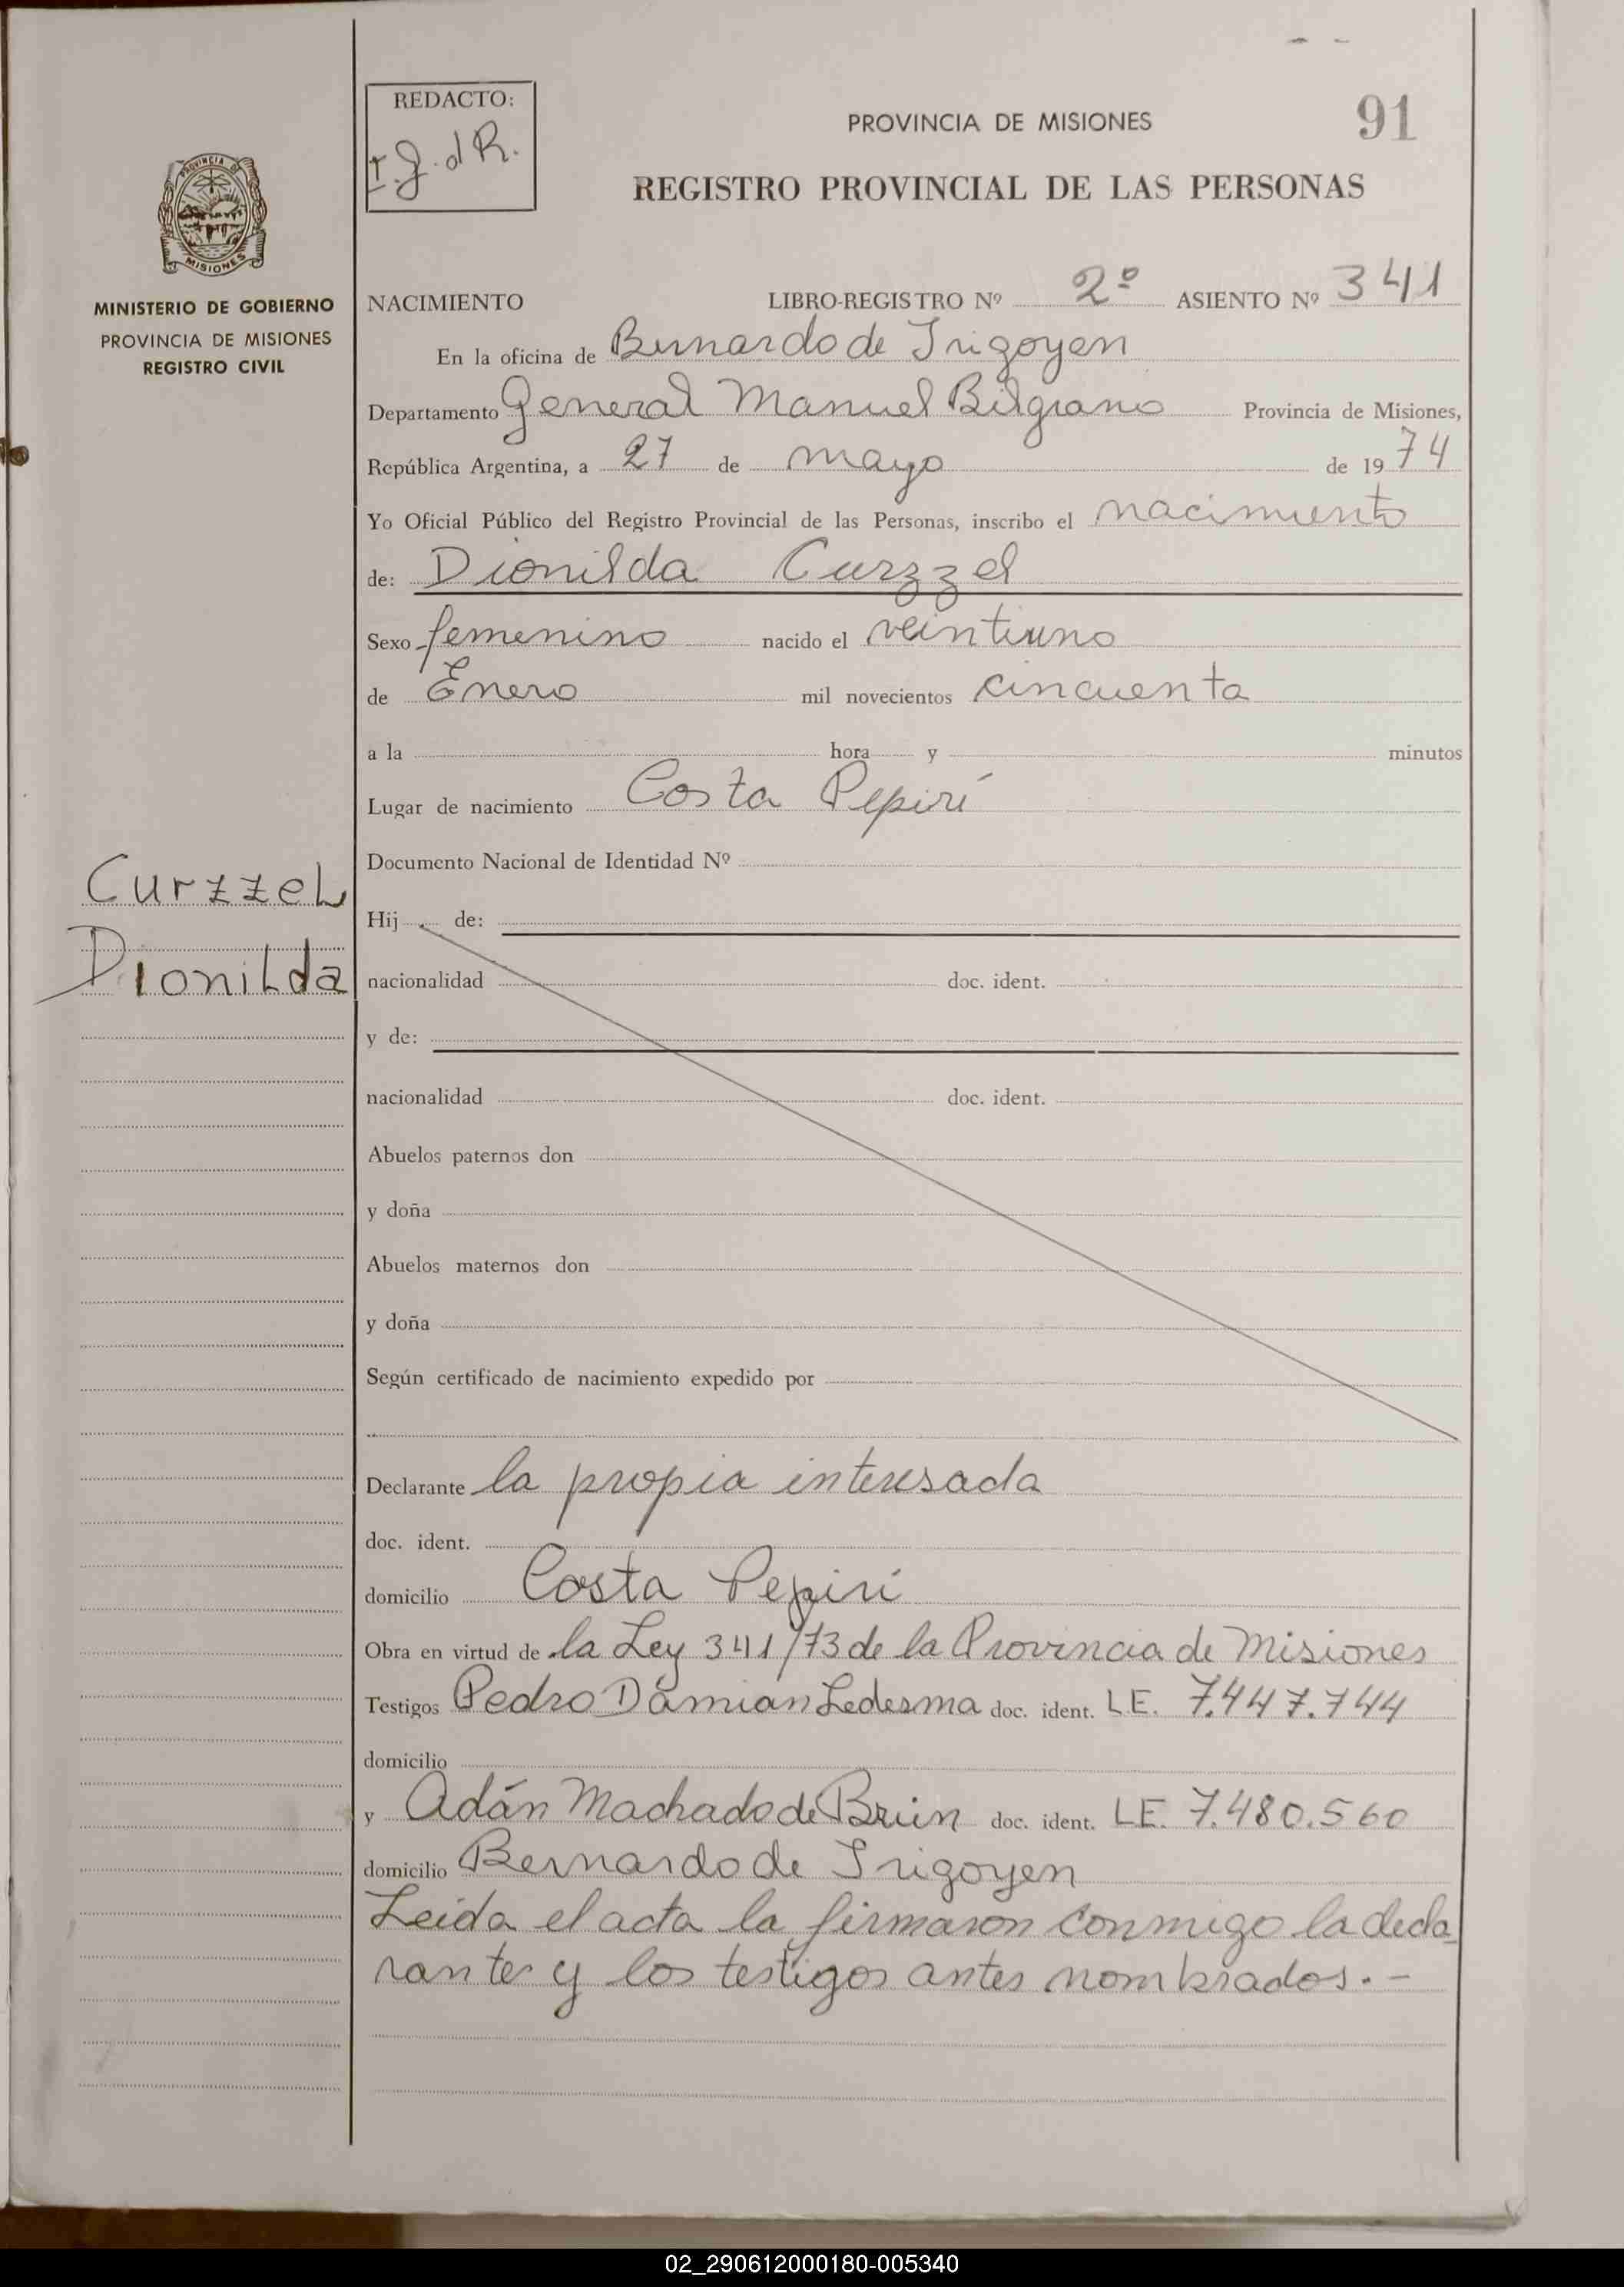 REDACTO:
I.J.dR.
PROVINCIA DE MISIONES
91
REGISTRO PROVINCIAL DE LAS PERSONAS
PROVINCIA DE
MISIONES
MINISTERIO DE GOBIERNO
PROVINCIA DE MISIONES
REGISTRO CIVIL
NACIMIENTO LIBRO-REGISTRO Nº 2º ASIENTO Nº 341
En la oficina de Bernardo de Irigoyen
Departamento General Manuel Belgrano Provincia de Misiones,
República Argentina, a 27 de mayo de 1974
Yo Oficial Público del Registro Provincial de las Personas, inscribo el nacimiento
de: Dionilda Curzzel
Sexo femenino nacido el veintiuno
de Enero mil novecientos cincuenta
a la hora y minutos
Lugar de nacimiento Costa Pepirí
Documento Nacional de Identidad Nº
Curzzel
Dionilda
Hij de:
nacionalidad doc. ident.
y de:
nacionalidad doc. ident.
Abuelos paternos don
y doña
Abuelos maternos don
y doña
Según certificado de nacimiento expedido por
Declarante la propia interesada
doc. ident.
domicilio Costa Pepirí
Obra en virtud de la Ley 341/73 de la Provincia de Misiones
Testigos Pedro Damian Ledesma doc. ident. LE. 7.447.744
domicilio
y Adán Machado de Brun doc. ident. LE. 7.480.560
domicilio Bernardo de Irigoyen
Leida el acta la firmaron conmigo la decla
rante y los testigos antes nombrados.-
02_290612000180-005340